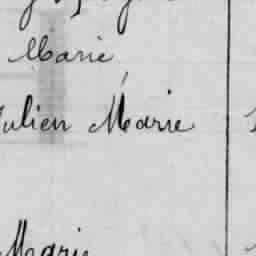 Marie
Julien Marie
Marie